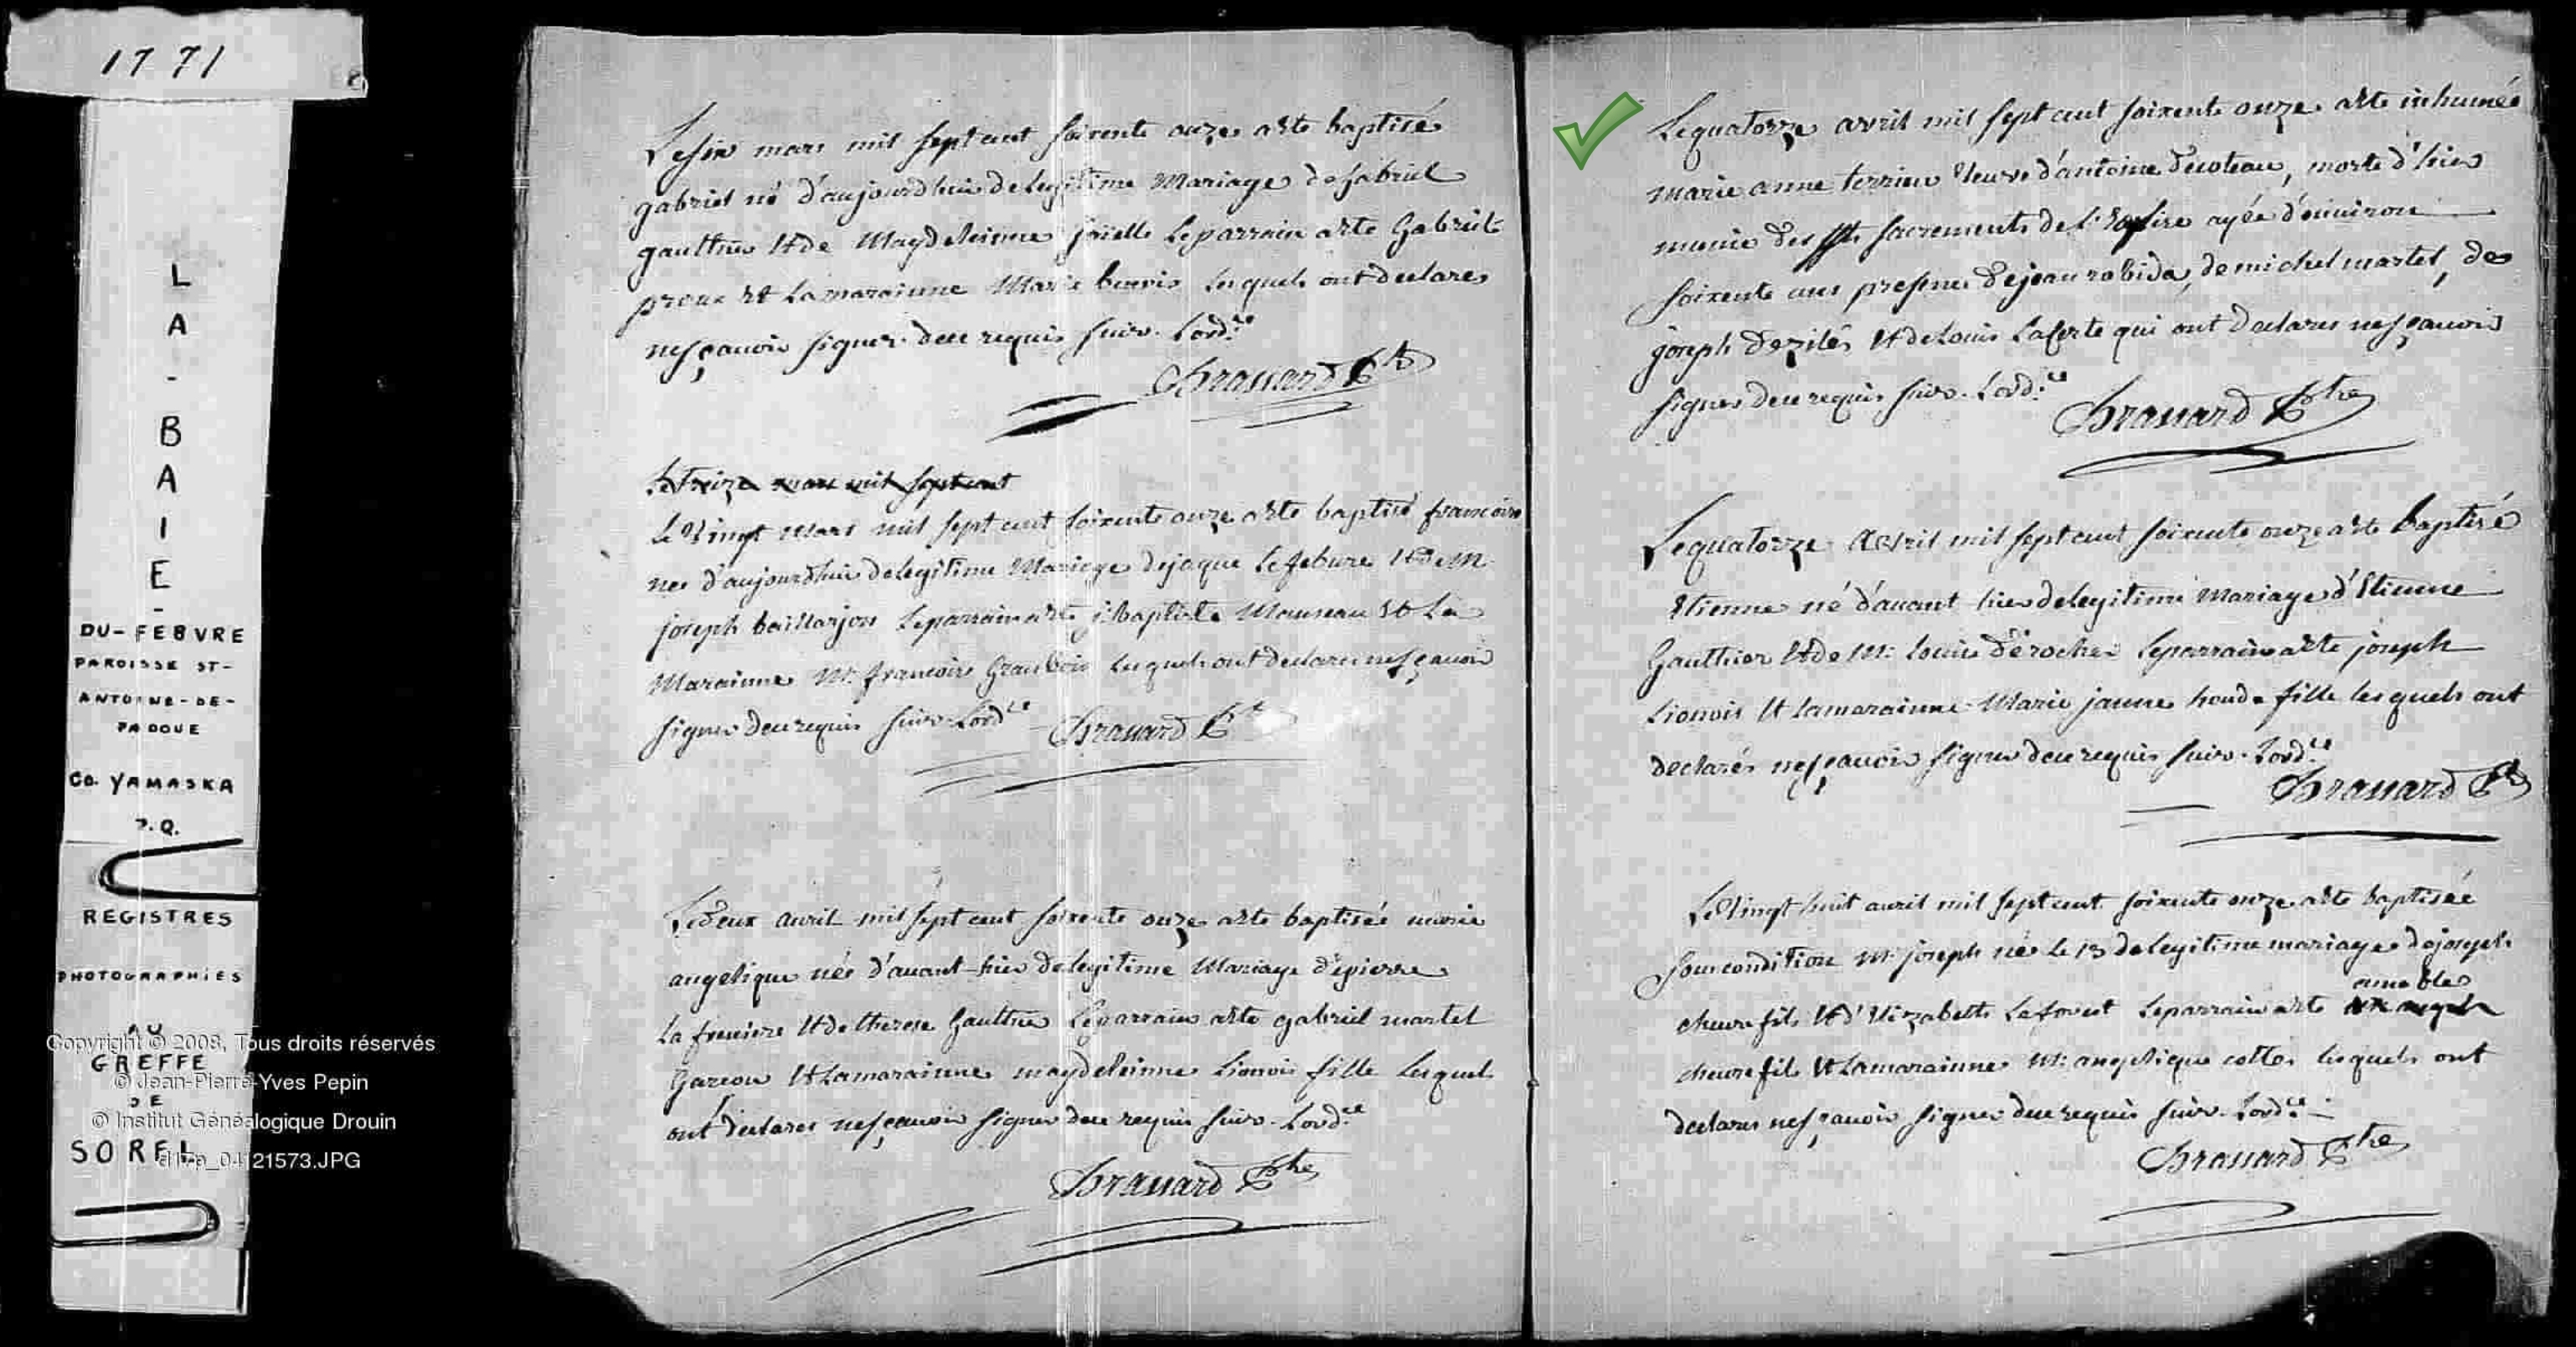 1771
L
A
-
B
A
I
E
-
DU-FEBVRE
PAROISSE ST-
ANTOINE-DE-
PADOUE
CO. YAMASKA
P.Q.
REGISTRES
PHOTOGRAPHIES
AU
GREFFE
DE
SOREL
Copyright © 2008, Tous droits réservés
© Jean-Pierre-Yves Pepin
© Institut Généalogique Drouin
21573.JPG
Le six mars mil sept cent soixente onze a été baptisé
gabriel né d'aujourdhui de legitime Mariage de gabriel
gauthier et de Magdeleinne joielle le parrain a été Gabriel
proux et la marainne Marie lesquels ont declares
ne sçavoir signer de ce requis suiv. L'ord.ce
Brassard Ptre
Le treize mars mil sept cent
Le vingt mars mil sept cent soixente onze a été baptisé francoise
née d'aujourdhui de legitime Mariage de jaque le febure et de M.
joseph baillarjon le parrain a été j. baptiste Manseau et la
Marainne M. francoise Granbois lesquels ont declares ne sçavoir
signer de ce requis suiv. L'ord.ce Brassard Ptre
Le deux avril mil sept cent soixente onze a été baptisée marie
angelique née d'avant hier de legitime Mariage de pierre
la freniere et de therese Gauthier le parrain a été gabriel martel
Garcon et la marainne magdeleinne Lionois fille lesquels
ont declares ne sçavoir signer de ce requis suiv. L'ord.ce
Brassard Ptre
Le quatorze avril mil sept cent soixente onze a été inhumée
marie anne terrien Veuve d'antoine Decoteau, morte d'hier
munie des sts sacrements de l'Eglise agée d'environ
soixente ans presence de jean robida, de michel martel, de
joseph Dezilés et de Louis Laferte qui ont declares ne sçavoir
signer de ce requis suiv. L'ord.ce
Brassard Ptre
Le quatorze Avril mil sept cent soixente onze a été baptisé
Etienne né d'avant hier de legitime Mariage d'Etienne
Gauthier et de M. louise Derocher le parrain a été joseph
Lionois et la marainne Marie jeanne houde fille lesquels ont
declarés ne sçavoir signer de ce requis suiv. L'ord.ce
Brassard Ptre
Le vingt huit avril mil sept cent soixente onze a été baptisée
sous condition M. joseph né le 13 de legitime mariage de joseph
amable
chevrefils et d'Elizabette Laforest le parrain a été
chevrefils et la marainne M. angelique cottes lesquels ont
declares ne sçavoir signer de ce requis suiv. L'ord.ce
Brassard Ptre